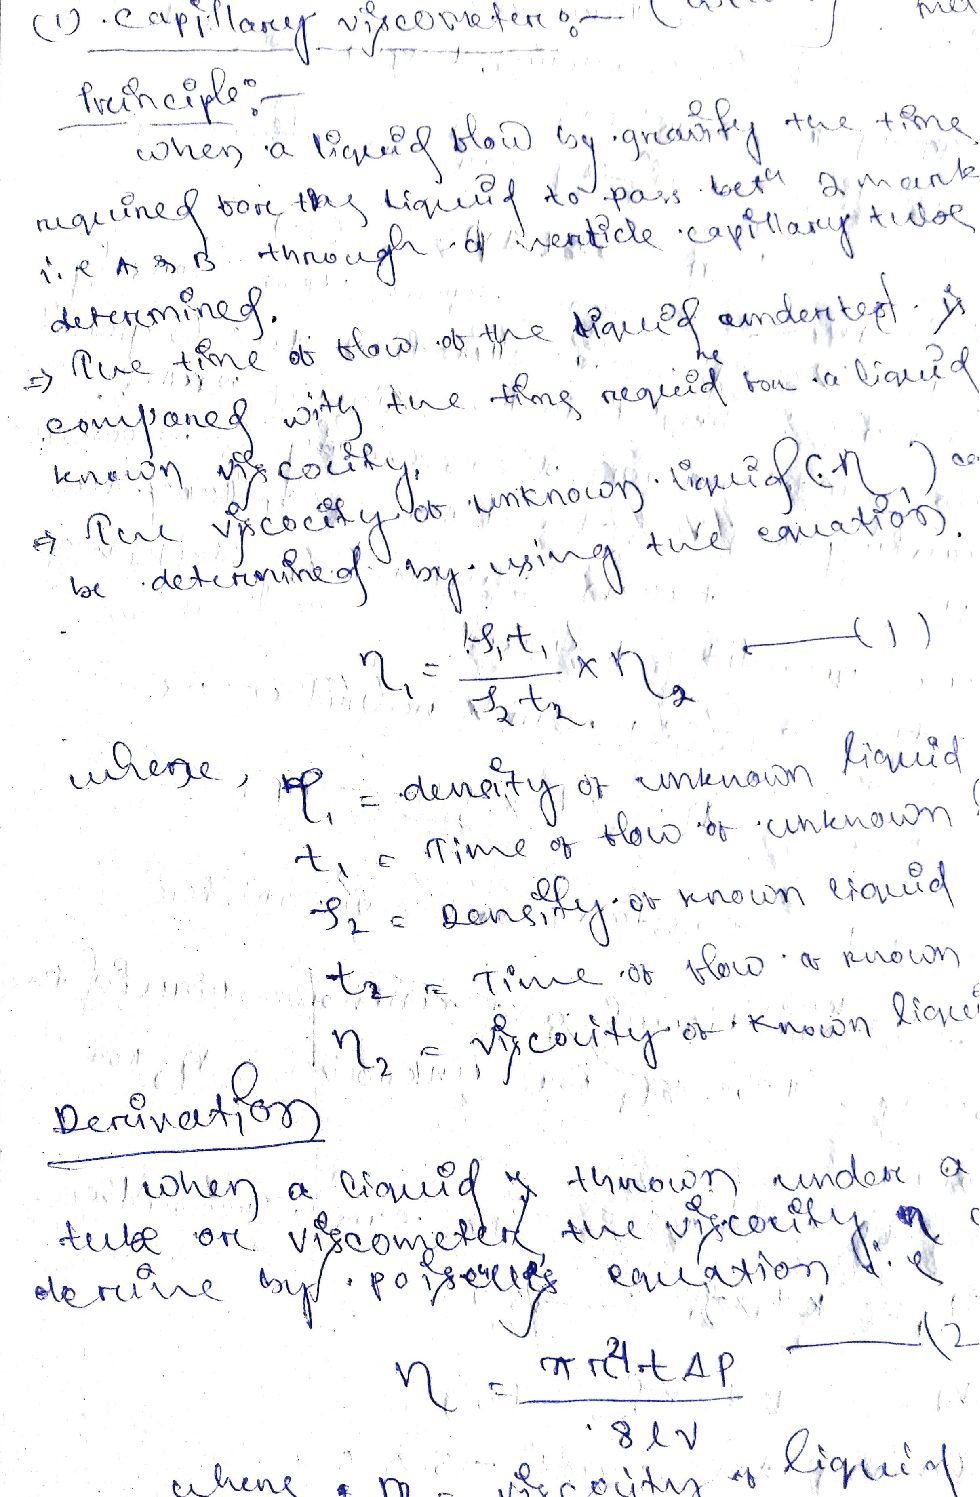 (1) . Capillary viscometer :- (
Principle :-
when a liquid flow by gravity the time
required for the liquid to pass betn 2 mark
i.e A & B through a verticle capillary tube
determined.
⇒ The time of flow of the liquid undertest is
compared with the time required for a liquid
known viscocity.
⇒ The viscocity of unknown liquid (η1) ca
be determined by using the equation.
η1 = ρ1 t1 / ρ2 t2 × η2 —— (1)
where, ρ1 = density of unknown liquid
t1 = Time of flow of unknown l
ρ2 = Density of known liquid
t2 = Time of flow of known
η2 = viscocity of known liqui
Derivation
when a liquid is thrown under a
tube or viscometer, the viscocity η
derive by poiseule's equation i.e
η = π r⁴ t ΔP / 8 l v —— (2
where, η = viscocity of liquid